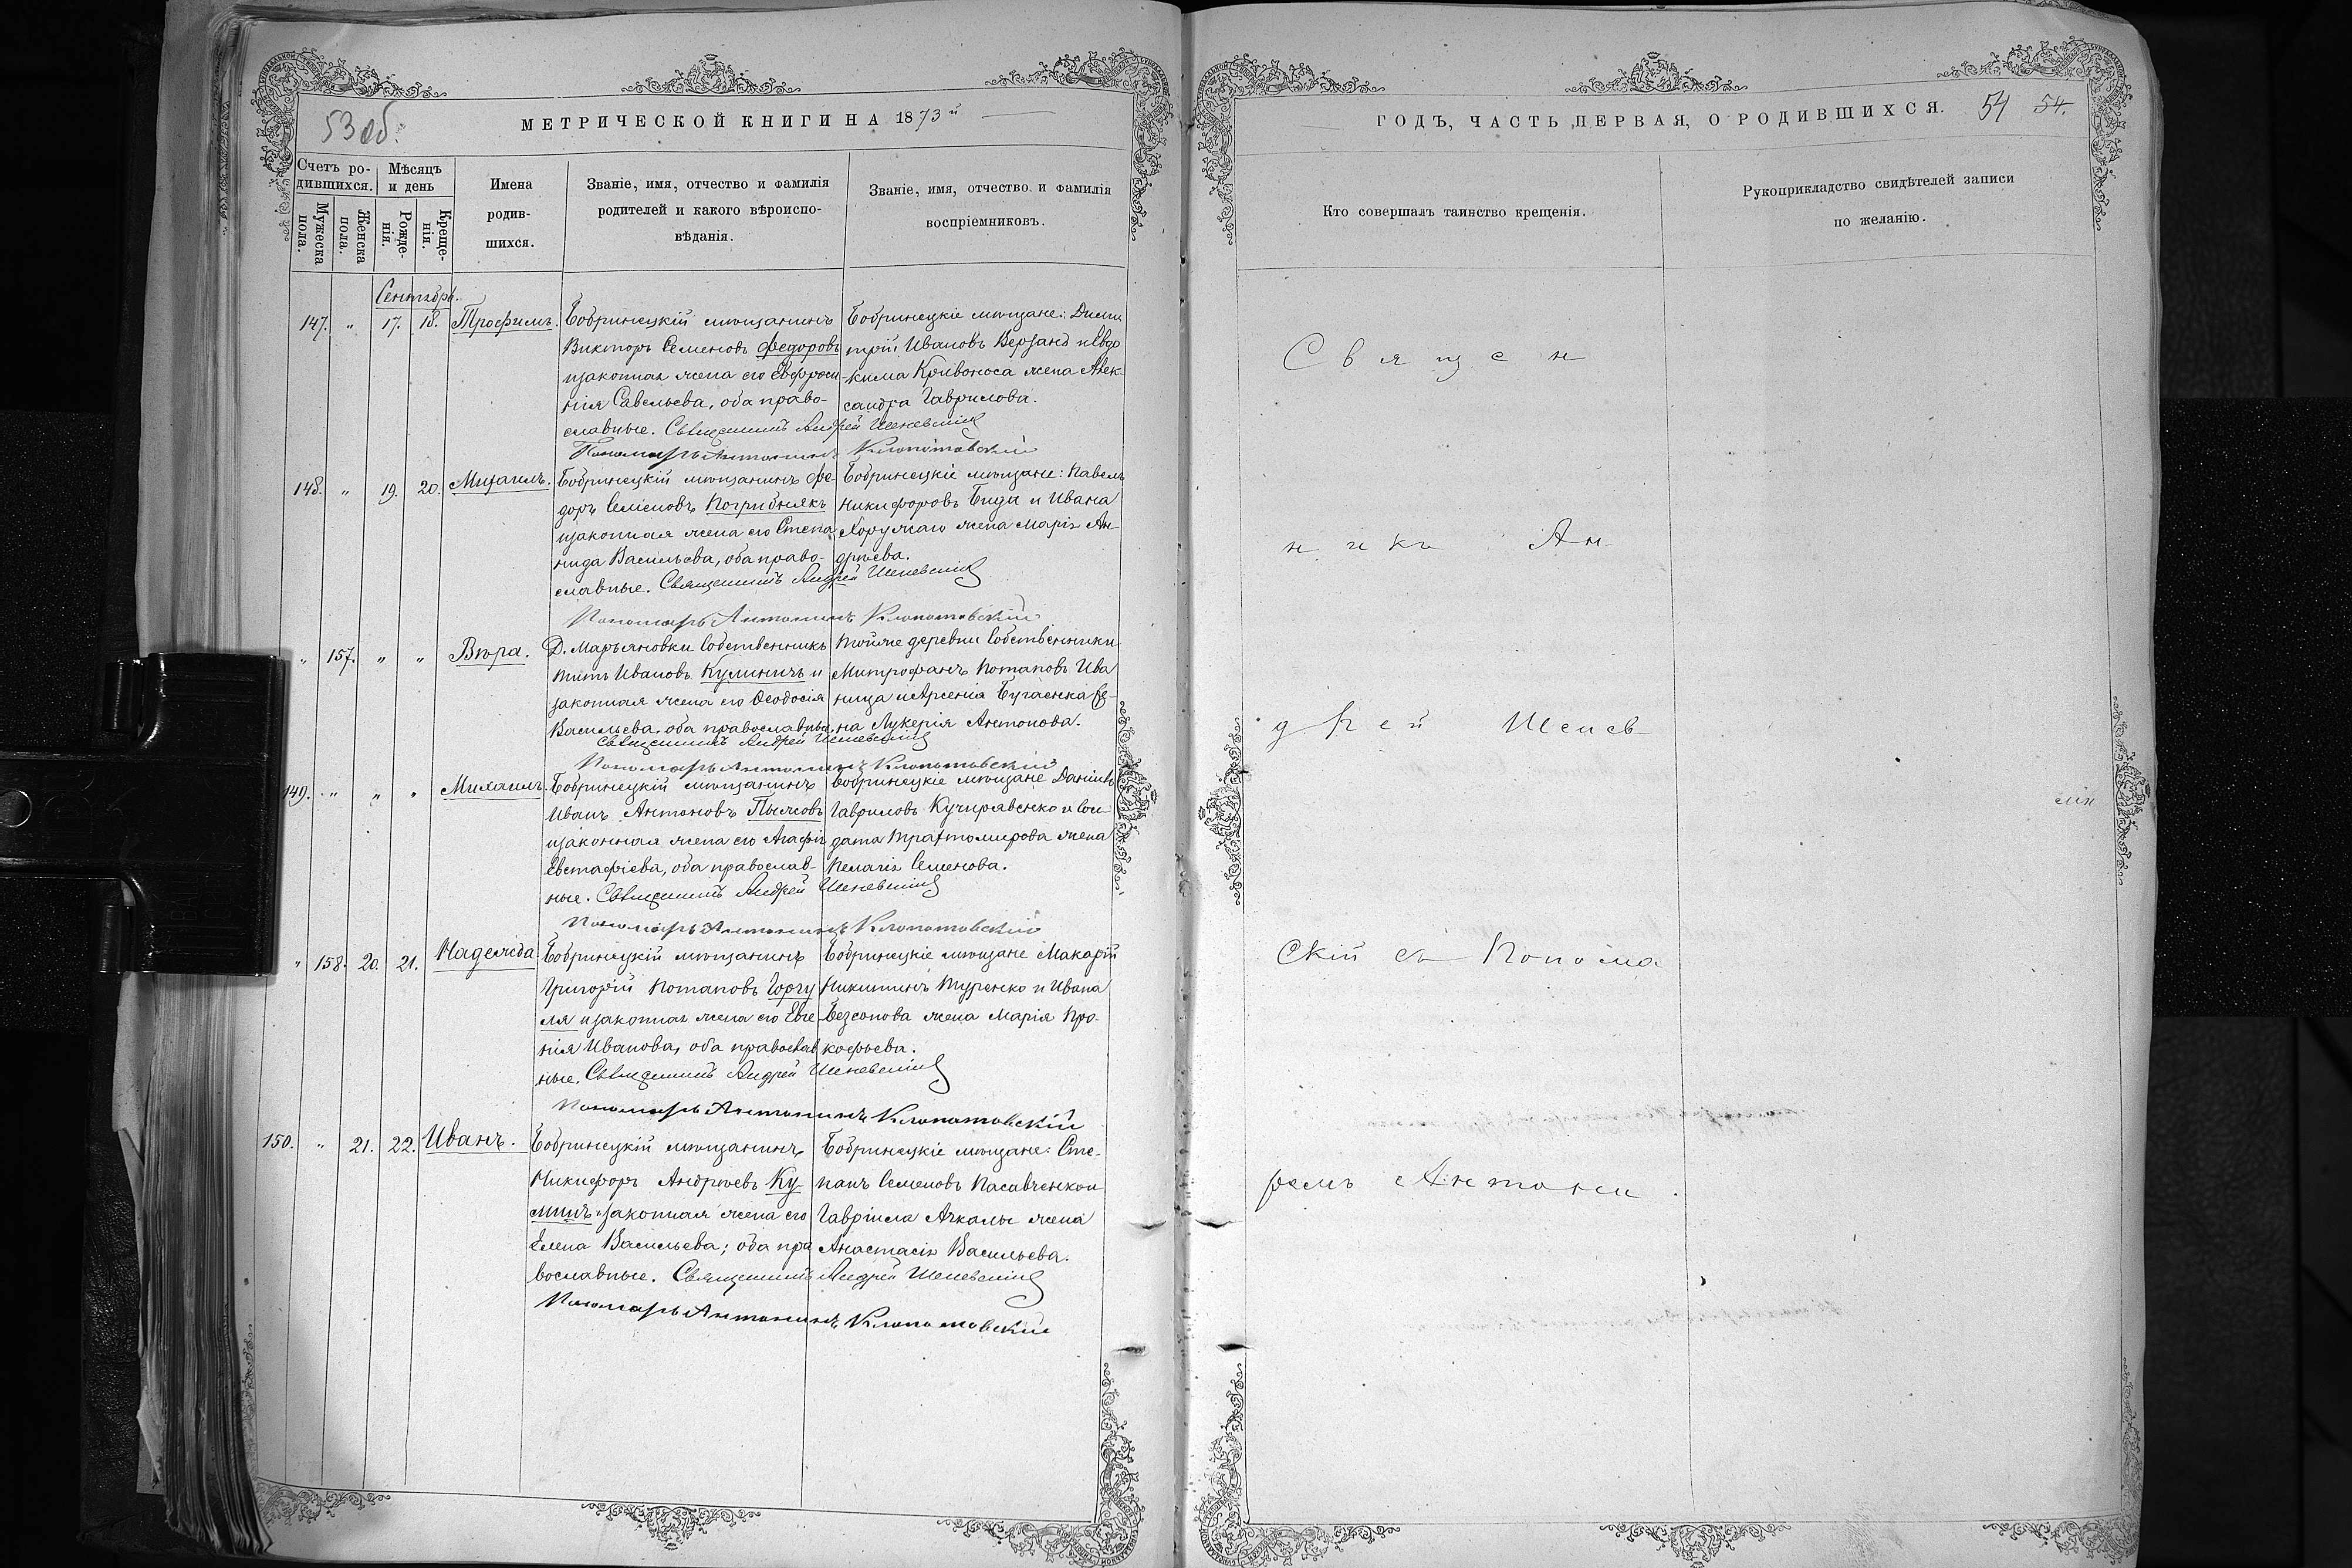 53 об.
МЕТРИЧЕСКОЙ КНИГИ НА 1873й
Счетъ ро-
дившихся.
Мужеска
пола.
Женска
пола.
Мѣсяцъ
и день
Рожде-
нія.
Креще-
нія.
Имена
родив-
шихся.
Званіе, имя, отчество и фамилія
родителей и какого вѣроиспо-
вѣданія.
Званіе, имя, отчество и фамилія
воспріемниковъ.
Сентябрь.
147. " 17. 18. Трофимъ.
Бобринецкій мѣщанинъ
Викторъ Семеновъ Федоровъ
изаконная жена его Евфроси-
нія Савельева, оба право-
славные. Священникъ Андрей Шеневскій
Пономарь Антонинъ Клопотовскій
Бобринецкіе мѣщане: Дими
трій Ивановъ Верзанъ иЕвдо
кима Кривоноса жена Алек-
сандра Гаврилова.
148. " 19. 20. Михаилъ.
Бобринецкій мѣщанинъ Фе-
доръ Семеновъ Погрибнякъ
изаконная жена его Степа
нида Васильева, оба право-
славные. Священникъ Андрей Шеневскій
Пономарь Антонинъ Клопотовскій
Бобринецкіе мѣщане: Павелъ
Никифоровъ Бида и Ивана
Хоружаго жена Марія Ан-
дрѣева.
" 157. " " Вѣра.
Д. Марьяновки собственникъ
Титъ Ивановъ Кулиничъ и
законная жена его Ѳеодосія
Васильева, оба православные
Священникъ Андрей Шеневскій
Пономарь Антонинъ Клопотовскій
Тойже деревни собственники
Митрофанъ Потаповъ Ива
ница иАрсенія Бугаенка же-
на Лукерія Антонова.
149. " " " Михаилъ.
Бобринецкій мѣщанинъ
Иванъ Антоновъ Пысковъ
изаконная жена его Агафія
Евстафіева, оба православ-
ные. Священникъ Андрей Шеневскій
Пономарь Антонинъ Клопотовскій
Бобринецкіе мѣщане Даніилъ
Гавриловъ Кучерявенко и сол
дата Трахтомирова жена
Пелагія Семенова.
" 158. 20. 21. Надежда
Бобринецкій мѣщанинъ
Григорій Потаповъ Горгу
ля изаконная жена его Евге
нія Иванова, оба православ
ные. Священникъ Андрей Шеневскій
Пономарь Антонинъ Клопотовскій
Бобринецкіе мѣщане Макарій
Никитинъ Туренко и Ивана
Безсонова жена Марія Про-
кофьева.
150. " 21. 22. Иванъ.
Бобринецкій мѣщанинъ
Никифоръ Андрѣевъ Ку-
ничъ изаконная жена его
Елена Васильева; оба пра
вославные. Священникъ Андрей Шеневскій
Пономарь Антонинъ Клопотовскій
Бобринецкіе мѣщане: Сте-
панъ Семеновъ Пасавченкои
Гавріила Ачкалы жена
Анастасія Васильева.
ГОДЪ, ЧАСТЬ ПЕРВАЯ, О РОДИВШИХСЯ. 54 54.
Кто совершалъ таинство крещенія.
Рукоприкладство свидѣтелей записи
по желанію.
Священ
никъ Ан-
дрей Шенев-
скій съ Понома
ремъ Антони